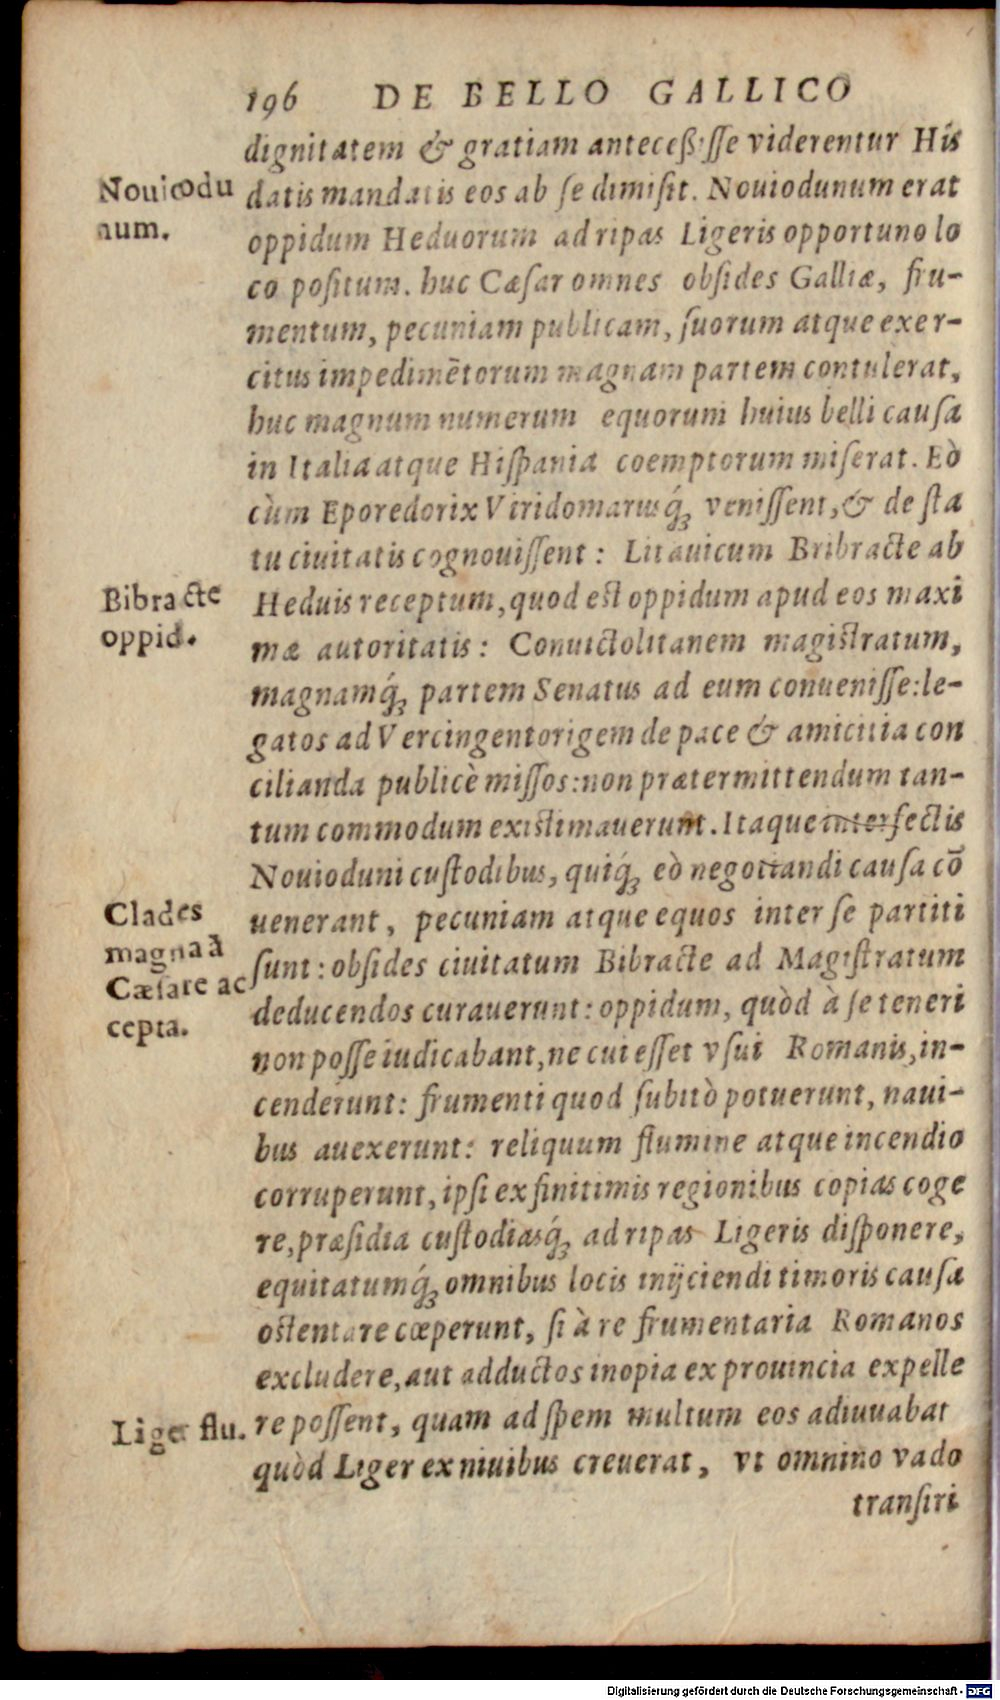 196 DE BELLO GALLICO
dignitatem & gratiam anteceßiſſe viderentur His
Nouiodu
num.
datis mandatis eos ab ſe dimiſit. Nouiodunum erat
oppidum Heduorum ad ripas Ligeris opportuno lo
co poſitum. huc Cæſar omnes obſides Galliæ, fru-
mentum, pecuniam publicam, ſuorum atque exer-
citus impedimētorum magnam partem contulerat,
huc magnum numerum equorum huius belli cauſa
in Italia atque Hiſpania coemptorum miſerat. Eò
cùm Eporedorix Viridomarusq́ꝫ veniſſent, & de ſta
tu ciuitatis cognouiſſent: Litauicum Bribracte ab
Bibracte
oppid.
Heduis receptum, quod est oppidum apud eos maxi
mæ autoritatis: Conuictolitanem magistratum,
magnamq́ꝫ partem Senatus ad eum conueniſſe: le-
gatos ad Vercingentorigem de pace & amicitia con
cilianda publicè miſſos: non prætermittendum tan-
tum commodum existimauerunt. Itaque interfectis
Nouioduni cuſtodibus, quiq́ꝫ eò negotiandi cauſa cō
Clades
magna à
Cæſare ac
cepta.
uenerant, pecuniam atque equos inter ſe partiti
ſunt: obſides ciuitatum Bibracte ad Magiſtratum
deducendos curauerunt: oppidum, quòd à ſe teneri
non poſſe iudicabant, ne cui eſſet vſui Romanis, in-
cenderunt: frumenti quod ſubitò potuerunt, naui-
bus auexerunt: reliquum flumine atque incendio
corruperunt, ipſi ex finitimis regionibus copias coge
re, præſidia cuſtodiasq́ꝫ ad ripas Ligeris diſponere,
equitatumq́ꝫ omnibus locis inijciendi timoris cauſa
ostentare cœperunt, ſi à re frumentaria Romanos
excludere, aut adductos inopia ex prouincia expelle
Liger flu.
re poſſent, quam ad ſpem multum eos adiuuabat
quòd Liger ex niuibus creuerat, vt omnino vado
tranſiri
Digitalisierung gefördert durch die Deutsche Forschungsgemeinschaft - DFG